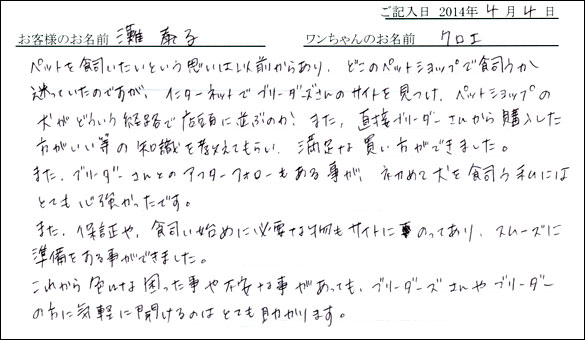 ご記入日 2014年 4月 4日
お客様のお名前 灘 ワンちゃんのお名前 クロエ
ペットを飼いたいという思いは以前からあり、どこのペットショップで飼うか
迷っていたのですが、インターネットでブリーダーズさんのサイトを見つけ、ペットショップの
犬がどういう経路で店頭に並ぶのか?また、直接ブリーダーさんから購入した
方がいい等の知識を教えてもらい、満足な買い方ができました。
また、ブリーダーさんとのアフターフォローもある事が、初めて犬を飼う私には
とても心強かったです。
また、保証や、飼い始めに必要な物もサイトにのってあり、スムーズに
準備をする事ができました。
これから色んな困った事や不安な事があっても、ブリーダーズさんやブリーダー
の方に気軽に聞けるのはとても助かります。